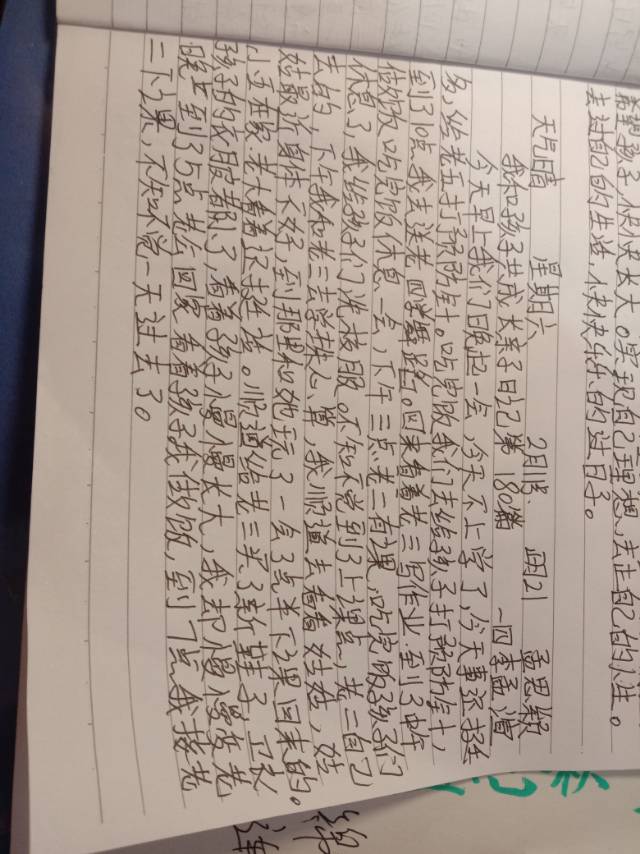 希望孩子们快快长大。实现自己理想,走上自己的人生。
去过自己的生活,快快乐乐的过日子。
天气晴 星期六 2月18 正月21 孟思颖
我和孩子共成长亲子日记第180篇 一四李孟道
今天早上我们晚起一会,今天不上学了,今天事还挺
多,给老五打预防针。吃完饭我们去给孩子打预防针,
到了10点我去送老四学舞蹈。回来看着老三写作业到了中午
做饭吃完饭休息一会,下午三点老二有课,吃完饭孩子们
休息了,我给孩子们洗衣服。不知不觉到了上课点,老二自己
去的,下午我和老三去学珠心算,我顺道去看看姑姑,姑
姑最近身体不好,到那里和她玩了一会3点半下课回来的。
小五在家老大看着没挺好。顺道给老三买了新鞋子,卫衣
孩子的衣服都小了,看着孩子慢慢长大,我却慢慢变老
晚上到了5点老公回家看着孩子我做饭,到了点我接老
二下课,不知不觉一天过去了。